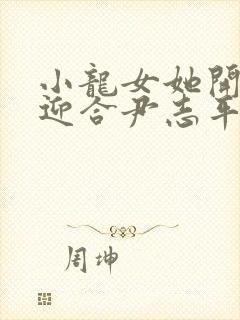 小龍女她開
迎合尹志平
周坤